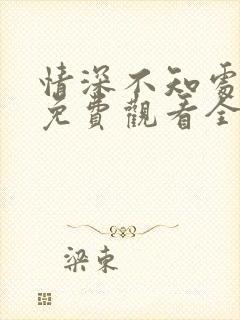 情深不知處
免費觀看全
梁東